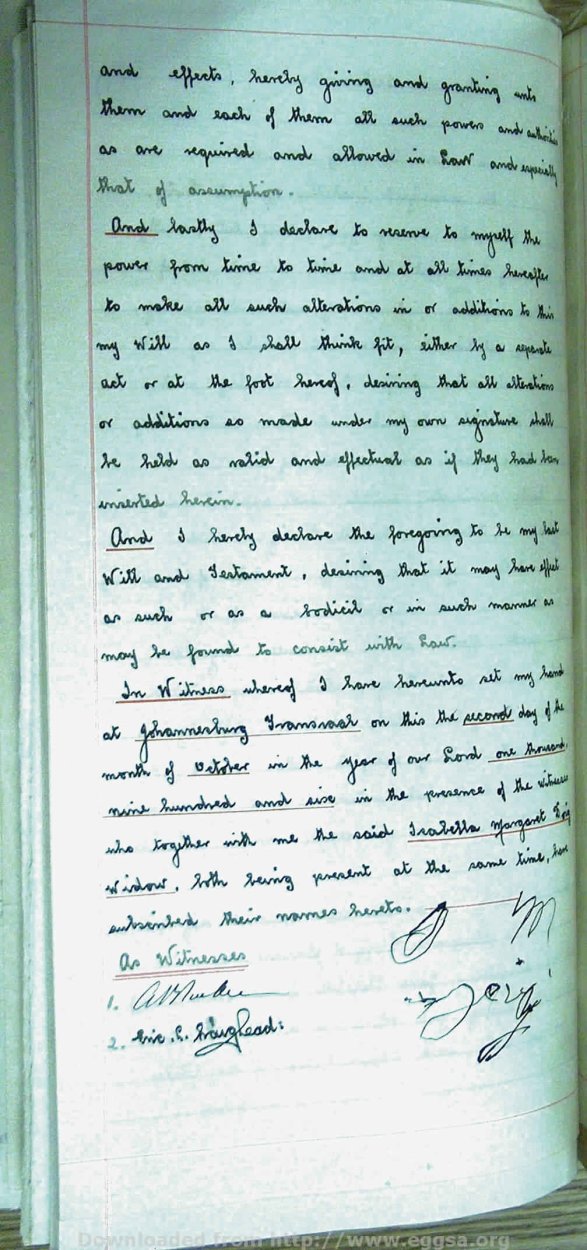 and effects, hereby giving and granting unto
them and each of them all such powers and authorities
as are required and allowed in Law and especially
that of assumption.
And lastly I declare to reserve to myself the
power from time to time and at all times hereafter
to make all such alterations in or additions to this
my Will as I shall think fit, either by a separate
act or at the foot hereof, desiring that all alterations
or additions so made under my own signature shall
be held as valid and effectual as if they had been
inserted herein.
And I hereby declare the foregoing to be my last
Will and Testament, desiring that it may have effect
as such or as a Codicil or in such manner as
may be found to consist with Law.
In Witness whereof I have hereunto set my hand
at Johannesburg Transvaal on this the second day of the
month of October in the year of our Lord one thousand,
nine hundred and six in the presence of the witnesses
who together with me the said Isabella Margaret
Widow, both being present at the same time, have
subscribed their names hereto.
As Witnesses
1.
2. Eric. C.
Downloaded from http://www.eggsa.org